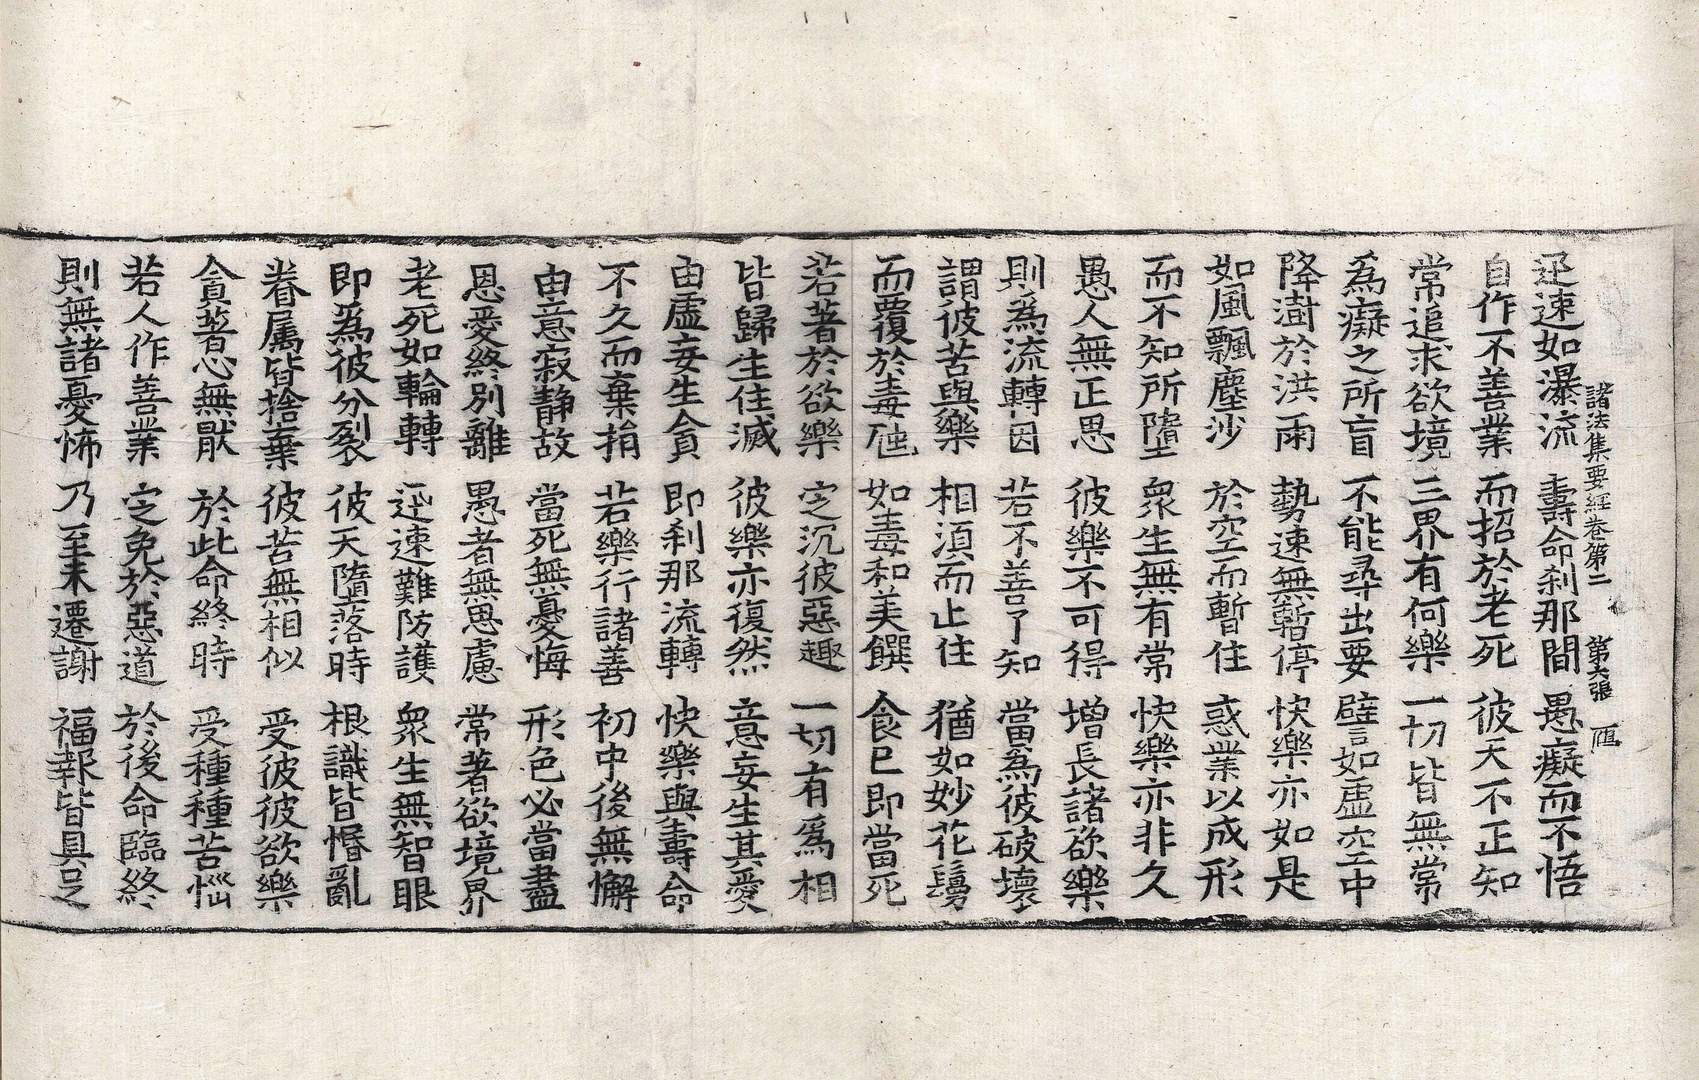 諸法集要經卷第二　第六張
迅速如瀑流　壽命剎那間　愚癡而不悟
自作不善業　而招於老死　彼天不正知
常追求欲境　三界有何樂　一切皆無常
為癡之所盲　不能尋出要　譬如虛空中
降澍於洪雨　勢速無暫停　快樂亦如是
如風飄塵沙　於空而暫住　惑業以成形
而不知所墮　衆生無有常　快樂亦非久
愚人無正思　彼樂不可得　增長諸欲樂
則為流轉因　若不善了知　當為彼破壞
謂彼苦與樂　相須而止住　猶如妙花鬘
而覆於毒虵　如毒和美饌　食已即當死
若著於欲樂　定沉彼惡趣　一切有為相
皆歸生住滅　彼樂亦復然　意妄生其愛
由虛妄生貪　即剎那流轉　快樂與壽命
不久而棄捐　若樂行諸善　初中後無懈
由意寂靜故　當死無憂悔　形色必當盡
恩愛終別離　愚者無思慮　常著欲境界
老死如輪轉　迅速難防護　衆生無智眼
即為彼分裂　彼天墮落時　根識皆惛亂
眷屬皆捨棄　彼苦無相似　受彼彼欲樂
貪著心無猒　於此命終時　受種種苦惱
若人作善業　定免於惡道　於後命臨終
則無諸憂怖　乃至未遷謝　福報皆具足